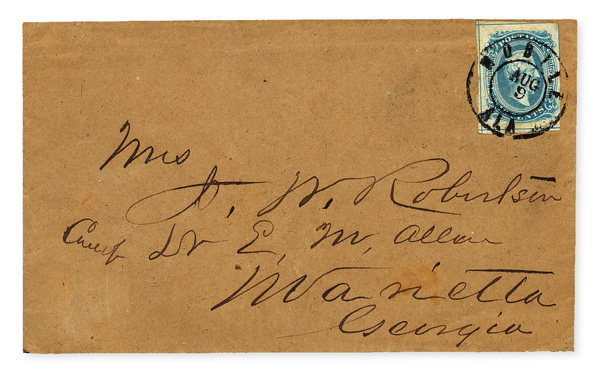 POSTAGE
MOBILE
AUG
9
ALA
CENTS
Mrs
J. W. Robertson
Care Dr E. M. Allen
Marietta
Georgia